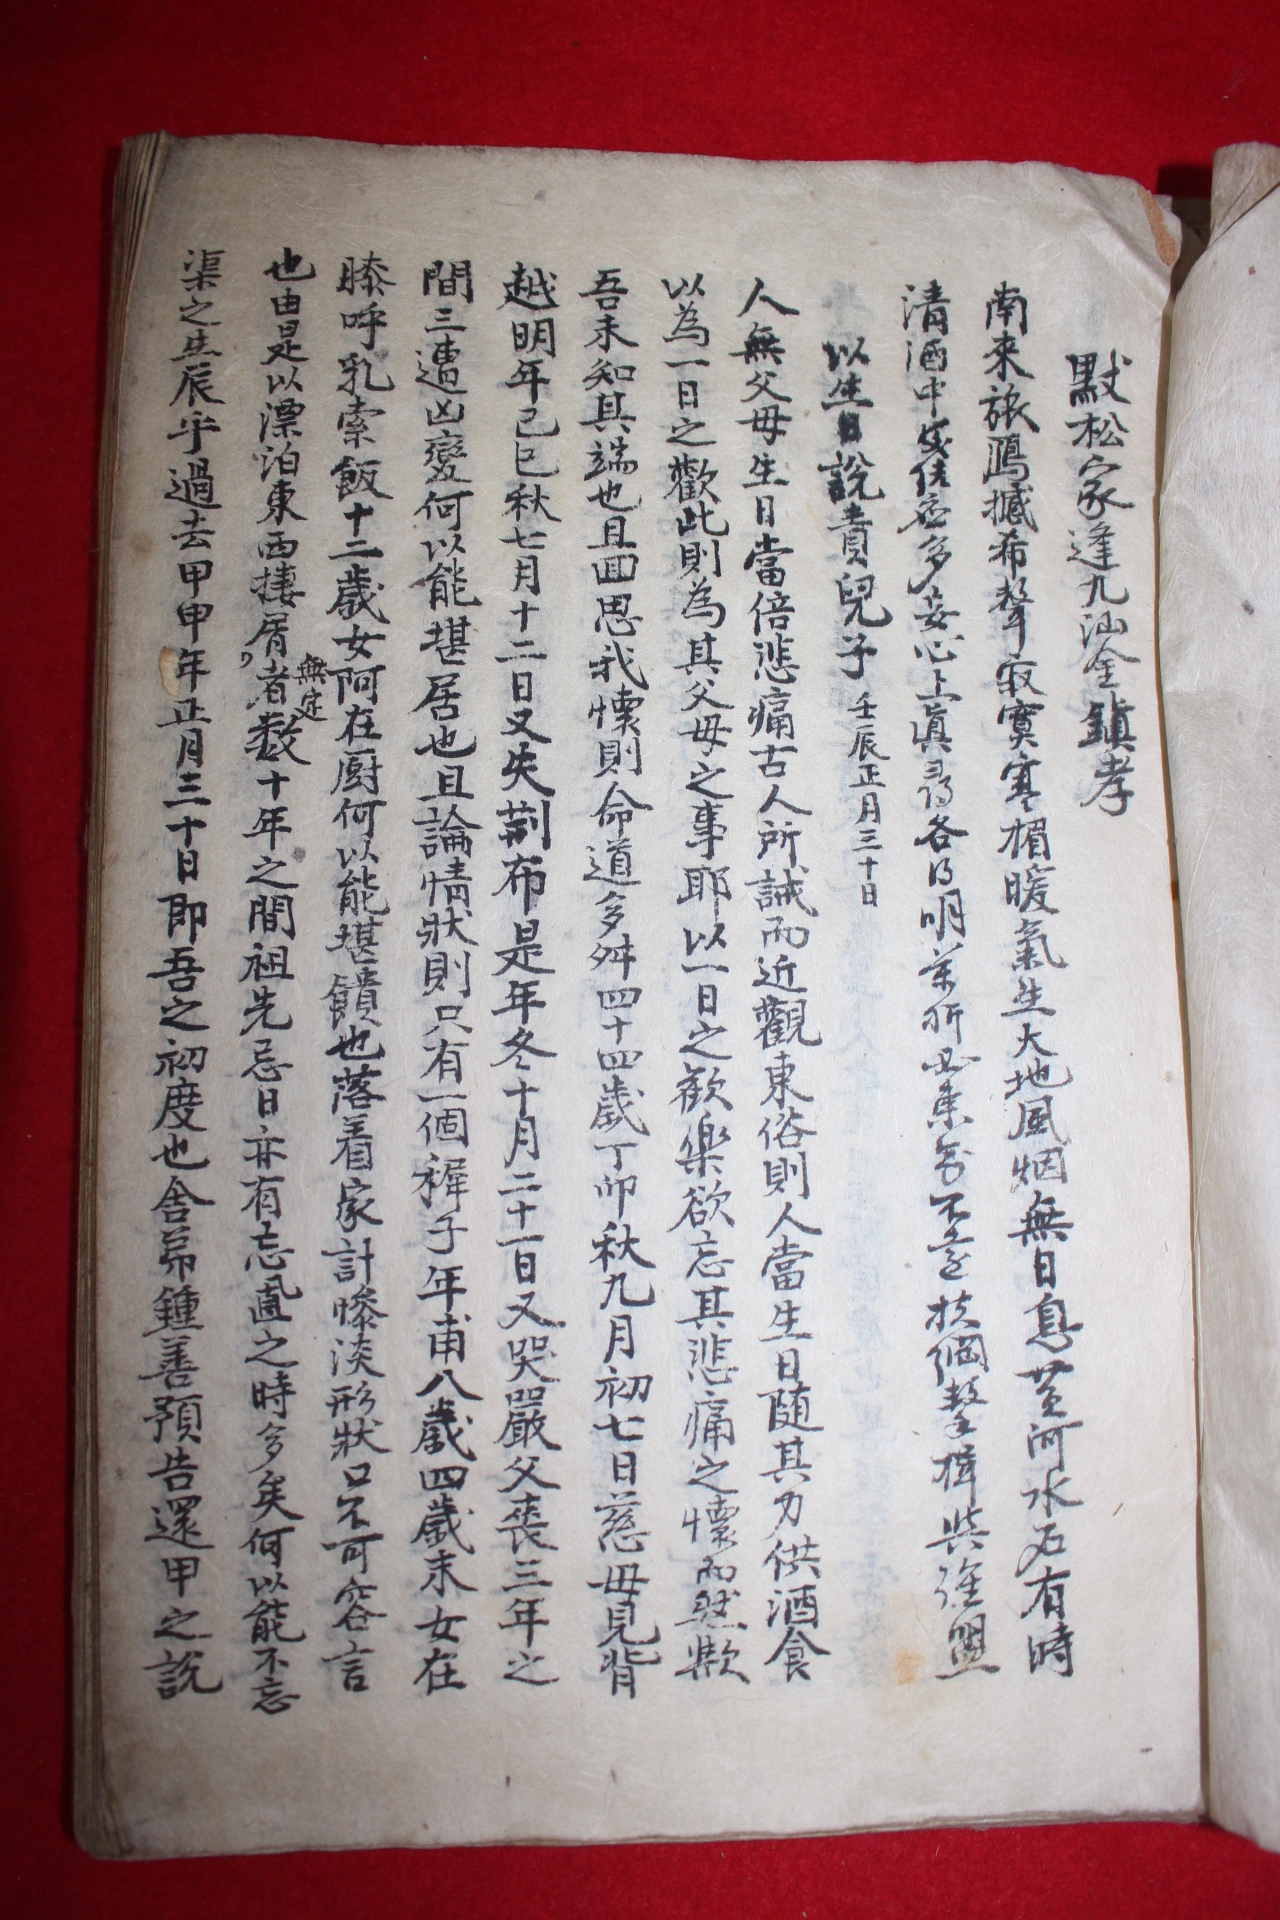 默松家逢九汕金鎮孝
南來旅鴈撼希聲寂寞寒楣暖氣生大地風烟無日息黃河水石有時
清酒中多妄心上眞尋各得明不意扶綱整楫共 盟
以生日說責兒子 壬辰正月三十日
人無父母生日當倍悲痛古人所誡而近觀東俗則人當生日随其力供酒食
以為一日之歡此則為其父母之事耶以一日之歡樂欲忘其悲痛之懷而然歟
吾未知其端也且回思我懷則命道多舛四十四歲丁卯秋九月初七日慈母見背
越明年己巳秋七月十二日又失荆布是年冬十月二十一日又哭嚴父喪三年之
間三遭凶變何以能堪居也且論情狀則只有一個稚子年甫八歲四歲末女在
膝呼乳索飯十二歲女阿在厨何以能堪饋也落着家計慘淡形狀口不可容言
也由是以漂泊東西捿屑無定者数十年之間祖先忌日亦有忘過之時多矣何以能不忘
渠之生辰乎過去甲申年正月三十日即吾之初度也舍弟鍾善預告還甲之說